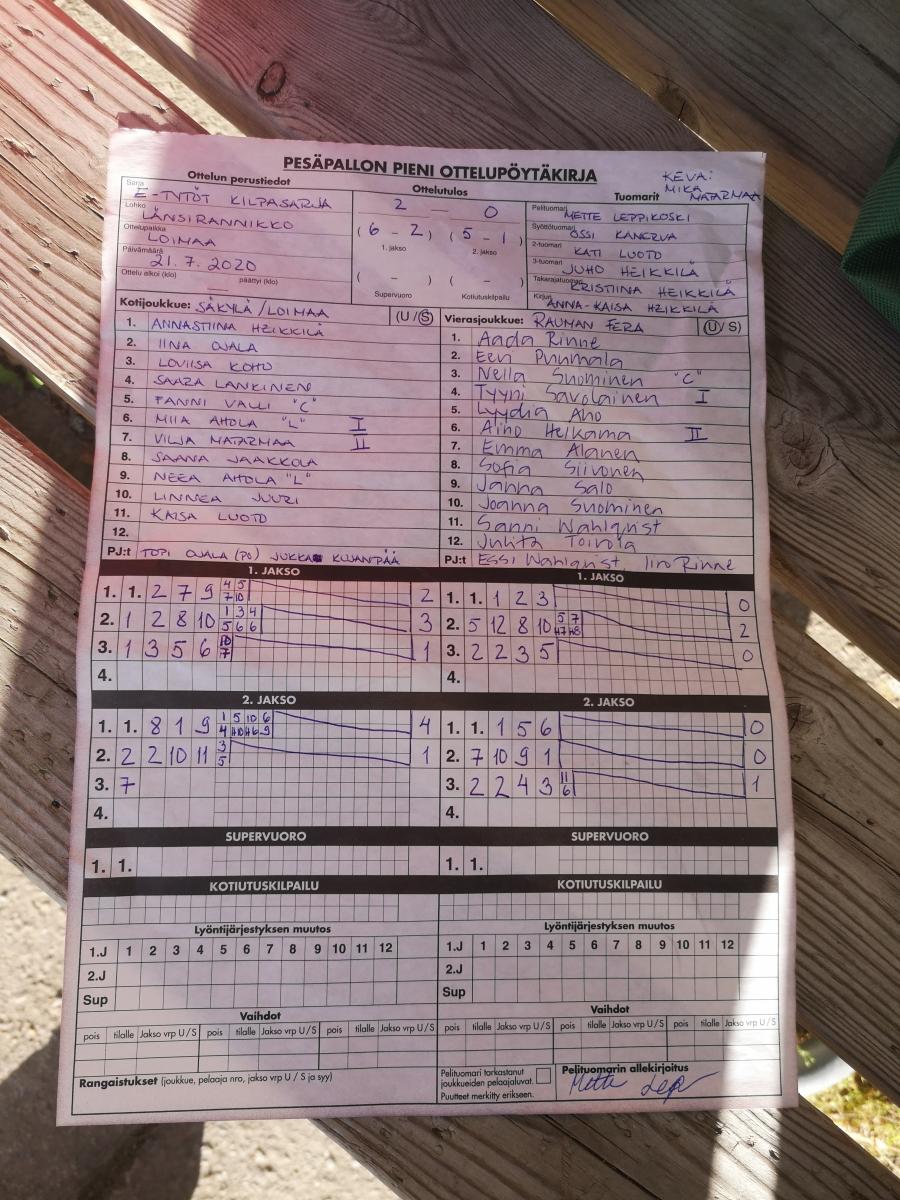 PESÄPALLON PIENI OTTELUPÖYTÄKIRJA
KEVA:
MIKA
MATARMAA
Ottelun perustiedot
Ottelutulos
Tuomarit
Sarja E-TYTÖT KILPASARJA
Lohko LÄNSIRANNIKKO
Ottelupaikka LOIMAA
Päivämäärä 21.7.2020
Ottelu alkoi (klo) päättyi (klo)
2 — 0
(6 - 2) (5 - 1)
1. jakso 2. jakso
( - ) ( - )
Supervuoro Kotiutuskilpailu
Pelituomari METTE LEPPIKOSKI
Syöttötuomari OSSI KANERVA
2-tuomari KATI LUOTO
3-tuomari JUHO HEIKKILÄ
Takarajatuomari KRISTIINA HEIKKILÄ
Kirjuri ANNA-KAISA HEIKKILÄ
Kotijoukkue: SÄKYLÄ/LOIMAA (U/S)
1. ANNASTIINA HEIKKILÄ
2. IINA OJALA
3. LOVIISA KOHO
4. SAARA LANKINEN
5. FANNI VALLI "C"
6. MIIA AHOLA "L" I
7. VILJA MATARMAA II
8. SAANA JAAKKOLA
9. NEEA AHOLA "L"
10. LINNEA JUURI
11. KAISA LUOTO
12.
PJ:t TOPI OJALA (PO) JUKKA KUJANPÄÄ
Vierasjoukkue: RAUMAN FERA (U/S)
1. Aada Rinne
2. Eeri Punmala
3. Nella Suominen "C"
4. Tyyni Savolainen I
5. Lyydia Aho
6. Aino Helkama II
7. Emma Alanen
8. Sofia Siivonen
9. Janna Salo
10. Joanna Suominen
11. Sanni Wahlqvist
12. Julita Toivola
PJ:t Essi Wahlqvist Jiro Rinne
1. JAKSO
1. 1. 2 7 9 4 5 7 10 2
2. 1 2 8 10 1 3 4 5 6 6 3
3. 1 3 5 6 10 7 1
4.
1. JAKSO
1. 1. 1 2 3 0
2. 5 12 8 10 5 7 H7 H8 2
3. 2 2 3 5 0
4.
2. JAKSO
1. 1. 8 1 9 1 5 10 6 4 H10 H6 9 4
2. 2 2 10 11 3 5 1
3. 7
4.
2. JAKSO
1. 1. 1 5 6 0
2. 7 10 9 1 0
3. 2 2 4 3 11 6 1
4.
SUPERVUORO
1. 1.
SUPERVUORO
1. 1.
KOTIUTUSKILPAILU
KOTIUTUSKILPAILU
Lyöntijärjestyksen muutos
1.J 1 2 3 4 5 6 7 8 9 10 11 12
2.J
Sup
Lyöntijärjestyksen muutos
1.J 1 2 3 4 5 6 7 8 9 10 11 12
2.J
Sup
Vaihdot
pois tilalle Jakso vrp U/S pois tilalle Jakso vrp U/S pois tilalle Jakso vrp U/S
Vaihdot
pois tilalle Jakso vrp U/S pois tilalle Jakso vrp U/S pois tilalle Jakso vrp U/S
Rangaistukset (joukkue, pelaaja nro, jakso vrp U / S ja syy)
Pelituomari tarkastanut
joukkueiden pelaajaluvat.
Puutteet merkitty erikseen.
Pelituomarin allekirjoitus
Mette